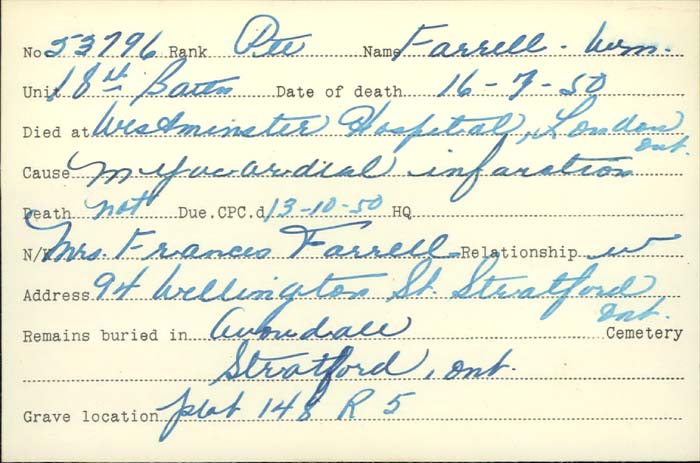 No 53796 Rank Pte Name Farrell - Wm.
Unit 18th Battn Date of death 16-7-50
Died at Westminster Hospital, London Ont.
Cause myocardial infarction
Death not Due. CPC.d 13-10-50 HQ
N/K Mrs. Frances Farrell Relationship w
Address 94 Wellington St. Stratford Ont.
Remains buried in Avondale Cemetery
Stratford, Ont.
Grave location plot 148 R 5